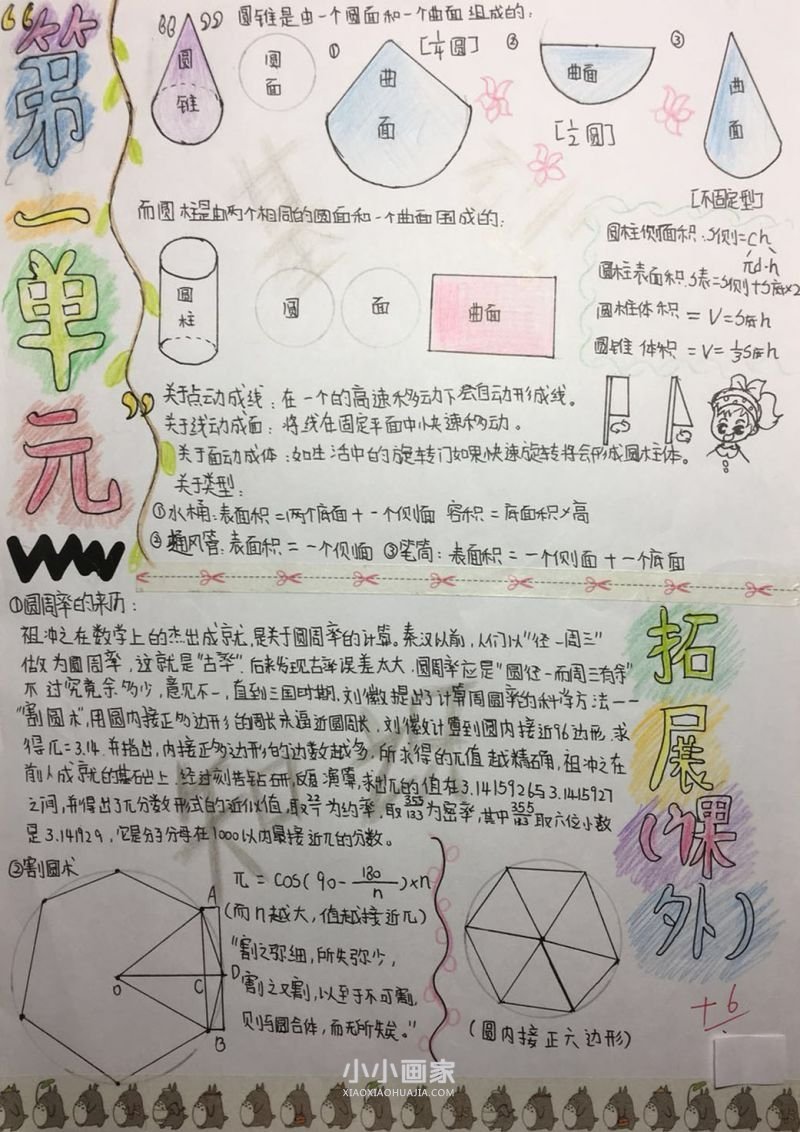 第一单元
圆锥是由一个圆面和一个曲面组成的：
圆锥
圆面
①
曲面
[¼圆]
②
曲面
[½圆]
③
曲面
[不固定型]
而圆柱是由两个相同的圆面和一个曲面围成的：
圆柱
圆
面
曲面
圆柱侧面积：S侧=Ch
πd·h
圆柱表面积：S表=S侧+S底×2
圆柱体积 = V=S底h
圆锥体积 = V=⅓S底h
关于点动成线：在一个的高速移动下会自动形成线。
关于线动成面：将线在固定平面中快速移动。
关于面动成体：如生活中的旋转门如果快速旋转将会形成圆柱体。
关于类型：
①水桶：表面积=两个底面+一个侧面 容积=底面积×高
②通风管：表面积=一个侧面 ③笔筒：表面积=一个侧面+一个底面
①圆周率的来历：
祖冲之在数学上的杰出成就，是关于圆周率的计算。秦汉以前，人们以“径一周三”
做为圆周率，这就是“古率”。后来发现古率误差太大，圆周率应是“圆径一而周三有余”
不过究竟余多少，意见不一，直到三国时期，刘徽提出了计算周圆率的科学方法——
“割圆术”，用圆内接正多边形的周长来逼近圆周长，刘徽计算到圆内接近96边形，求
得π=3.14，并指出，内接正多边形的边数越多，所求得的π值越精确，祖冲之在
前人成就的基础上，经过刻苦钻研，反复演算，求出π的值在3.1415926与3.1415927
之间，并得出了π分数形式的近似值，取22/7为约率，取355/133为密率，其中355/133取六位小数
是3.141929，它是分子分母在1000以内最接近π的分数。
拓展（课外）
②割圆术
A
O
C
D
B
π = COS(90-180/n)×n
(而n越大，值越接近π)
“割之弥细，所失弥少，
割之又割，以至于不可割，
则与圆合体，而无所失矣。”
(圆内接正六边形)
+6
小小画家
XIAOXIAOHUAJIA.COM